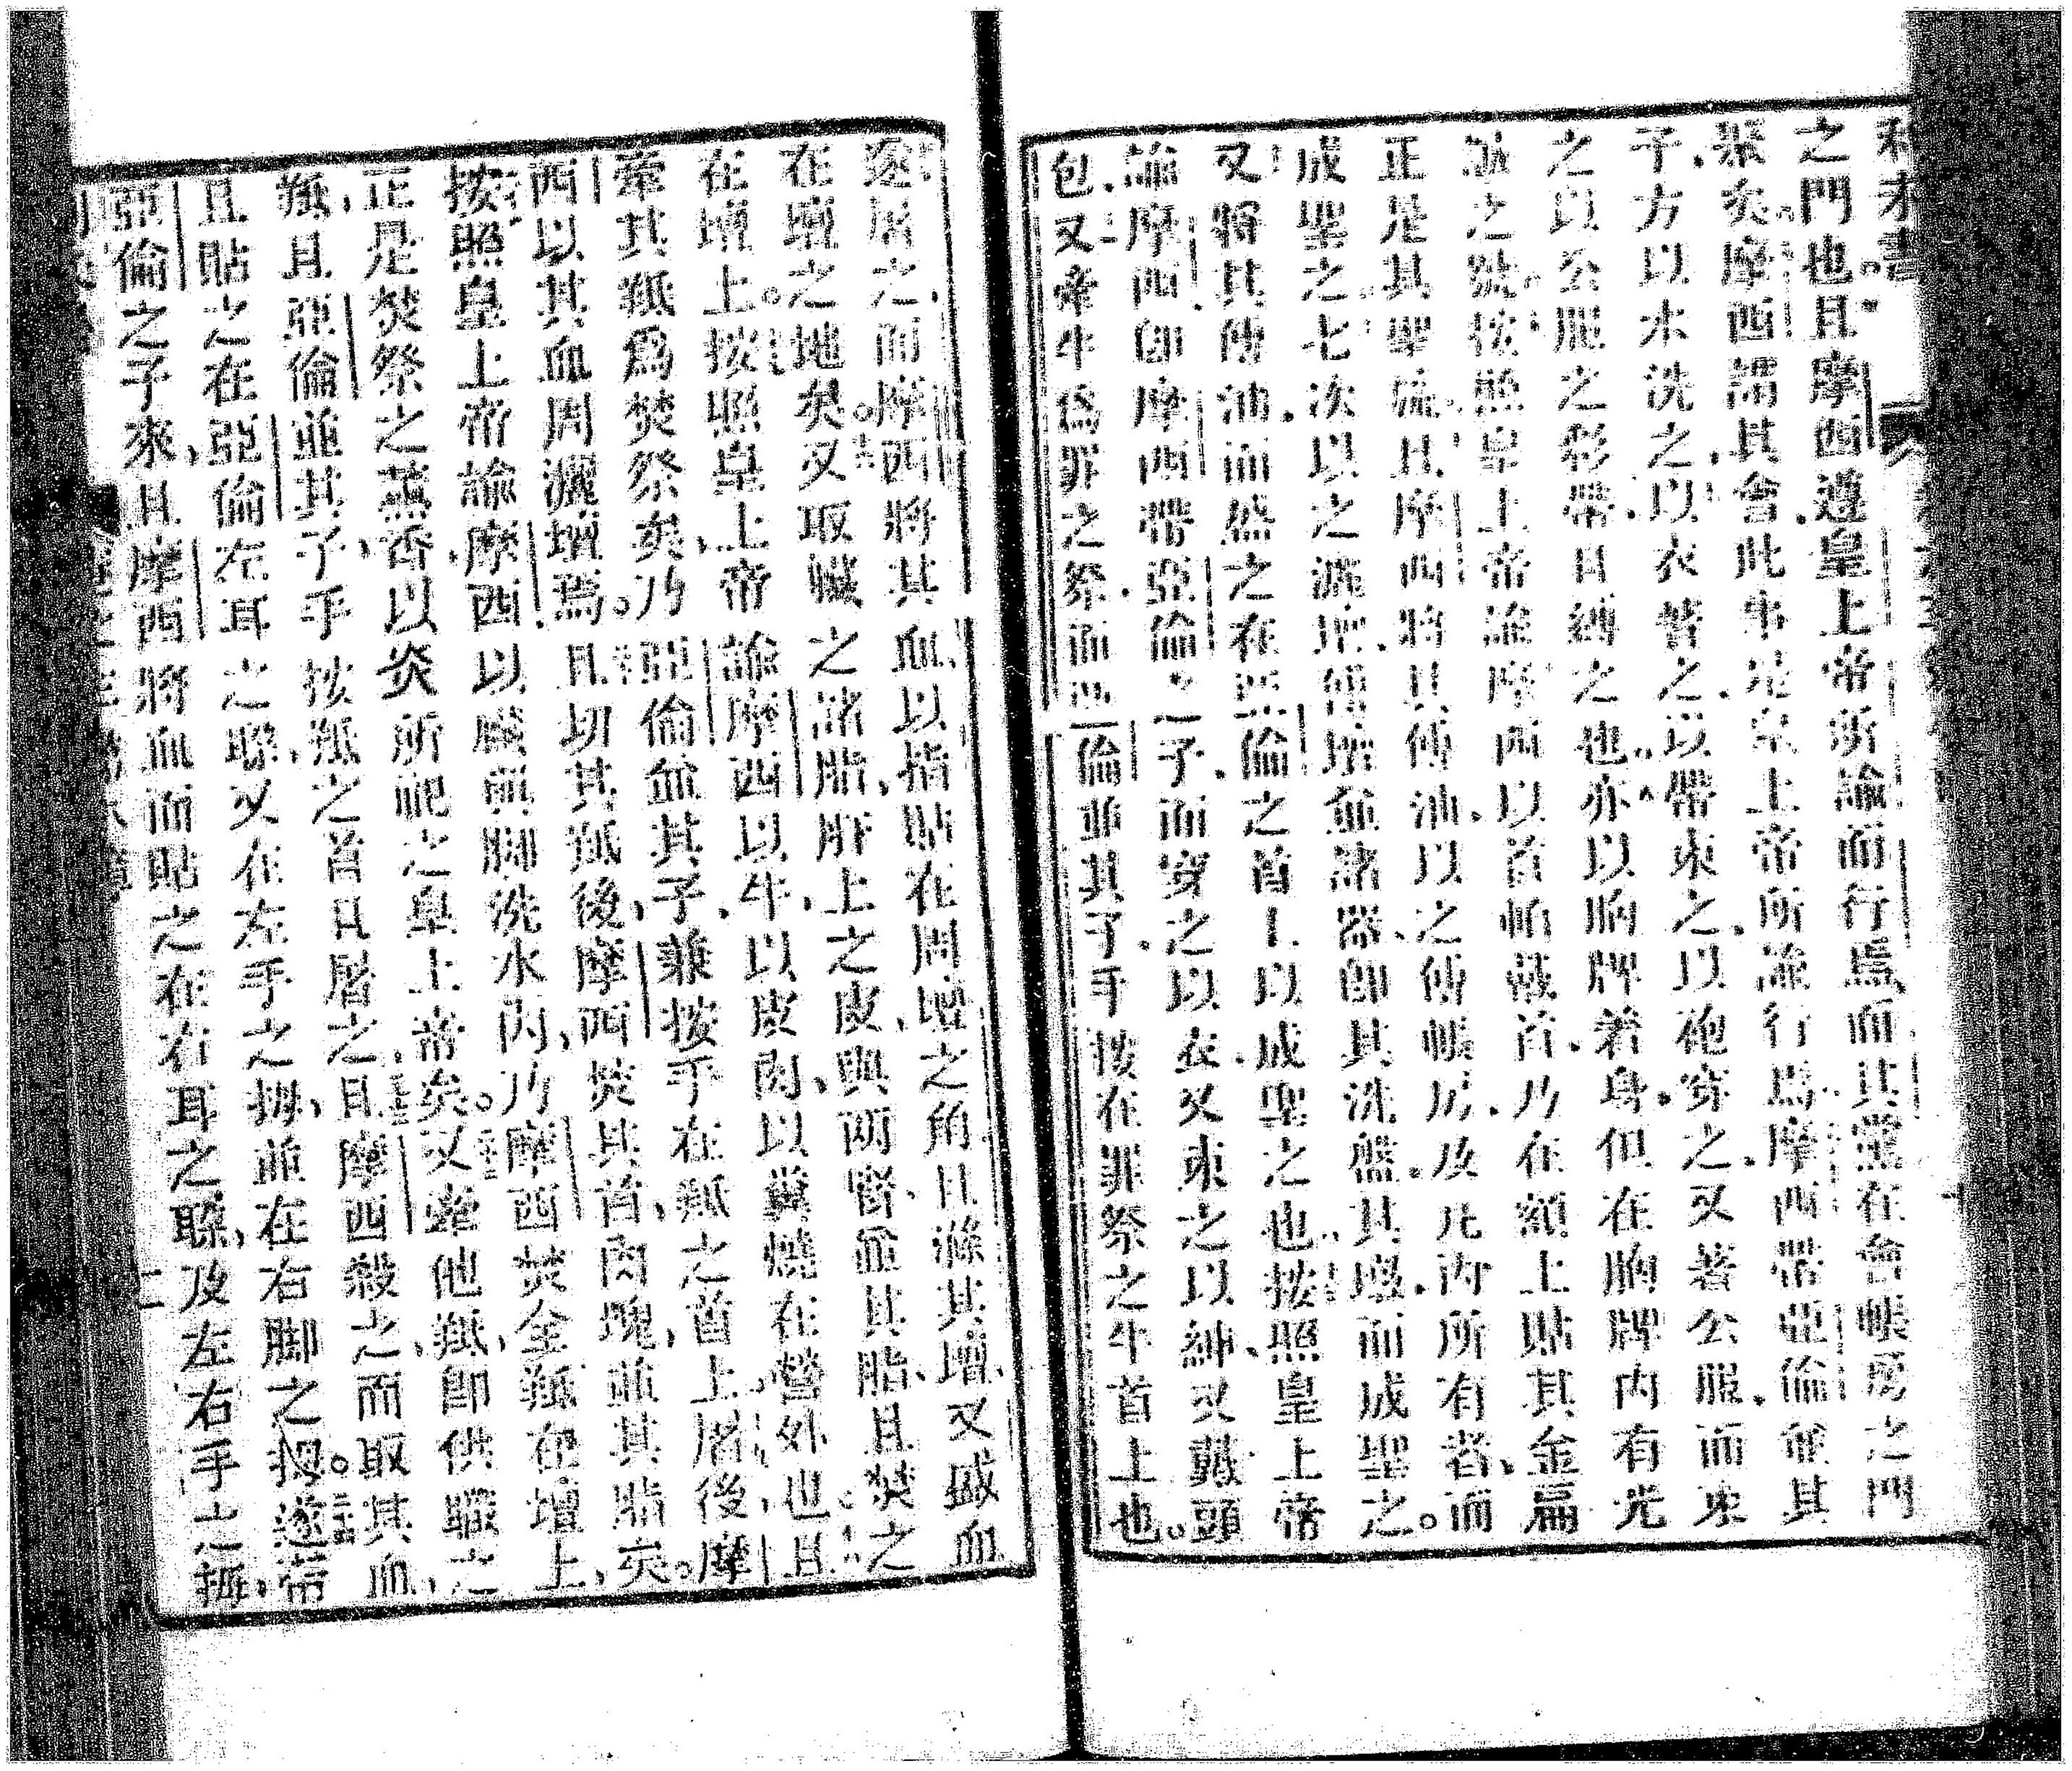 利未書
之門也。且摩西遵皇上帝所諭而行焉、而其黨在會帳房之門
聚矣。摩西謂其會、此事是皇上帝所諭行焉、摩西帶亞倫並其
子、方以水洗之、以衣着之、以帶束之、以袍穿之、又著公服、而束
之以公服之彩帶、且縛之也、亦以胸牌着身、但在胸牌內有光
誠之號、按照皇上帝諭摩西、以首帕戴首、乃在額上貼其金扁
正是其聖旒、且摩西將其傅油、以之傅帳房、及凡內所有者、而
成聖之、七次以之灑壇、傅壇並諸器、卽其洗盤、其墩、而成聖之。
又將其傅油、而盛之在亞倫之首上、以成聖之也、按照皇上帝
諭摩西、卽摩西帶亞倫之子、而穿之以衣、又束之以紳、又戴頭
包、又牽牛爲罪之祭、而亞倫並其子、手按在罪祭之牛首上也。
遂屠之、而摩西將其血、以指貼在周壇之角、且滌其壇、又盛血
在壇之地矣。又取臟之諸脂、肝上之皮、與兩腎並其脂、且焚之
在壇上。按照皇上帝諭摩西、以牛、以皮肉、以糞燒在營外也、且
牽其羝爲焚祭矣、乃亞倫並其子、兼按手在羝之首上、屠後、摩
西以其血周灑壇焉。且切其羝後、摩西焚其首、肉塊、並其脂矣。
按照皇上帝諭摩西、以臟與脚洗水內、乃摩西焚全羝在壇上、
正是焚祭之薰香、以炎所祀之皇上帝矣。又牽他羝、卽供職之
羝、且亞倫並其子、手按羝之首、且屠之、且摩西殺之、而取其血、
且貼之在亞倫左耳之聮、又在左手之拇、並在右脚之拇。遂帶
亞倫之子來、且摩西將血而貼之在右耳之聮、及左右手之拇、